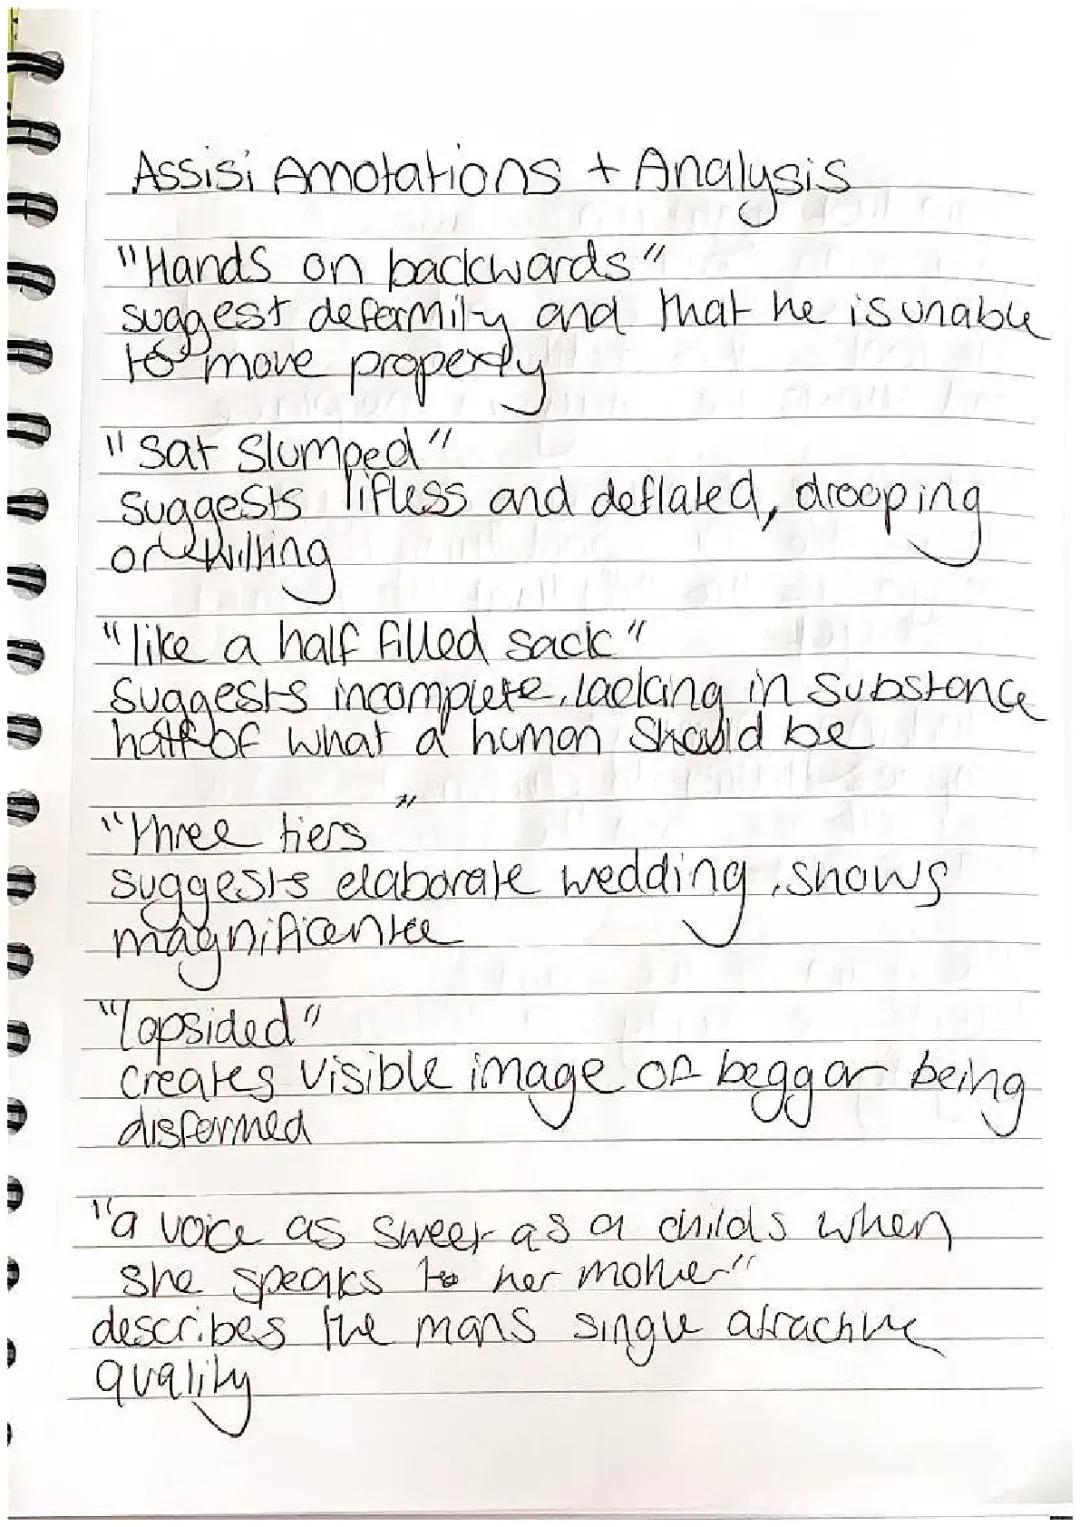 Assisi Amotations + Analysis
"Hands on backwards"
suggest deformily and that he is unable
to move properly
"Sat Slumped"
Suggests lifless and deflated, drooping
or wilting
"like a half filled sack"
Suggests incomplete, lacking in Substance
half of what a human Should be
"Three tiers"
suggests elaborate wedding, shows
magnificentce
"Lopsided"
creates visible image of beggar being
disformed
"a voice as sweet as a childs when
she speaks to her mother"
describes the mans single atractive
quality